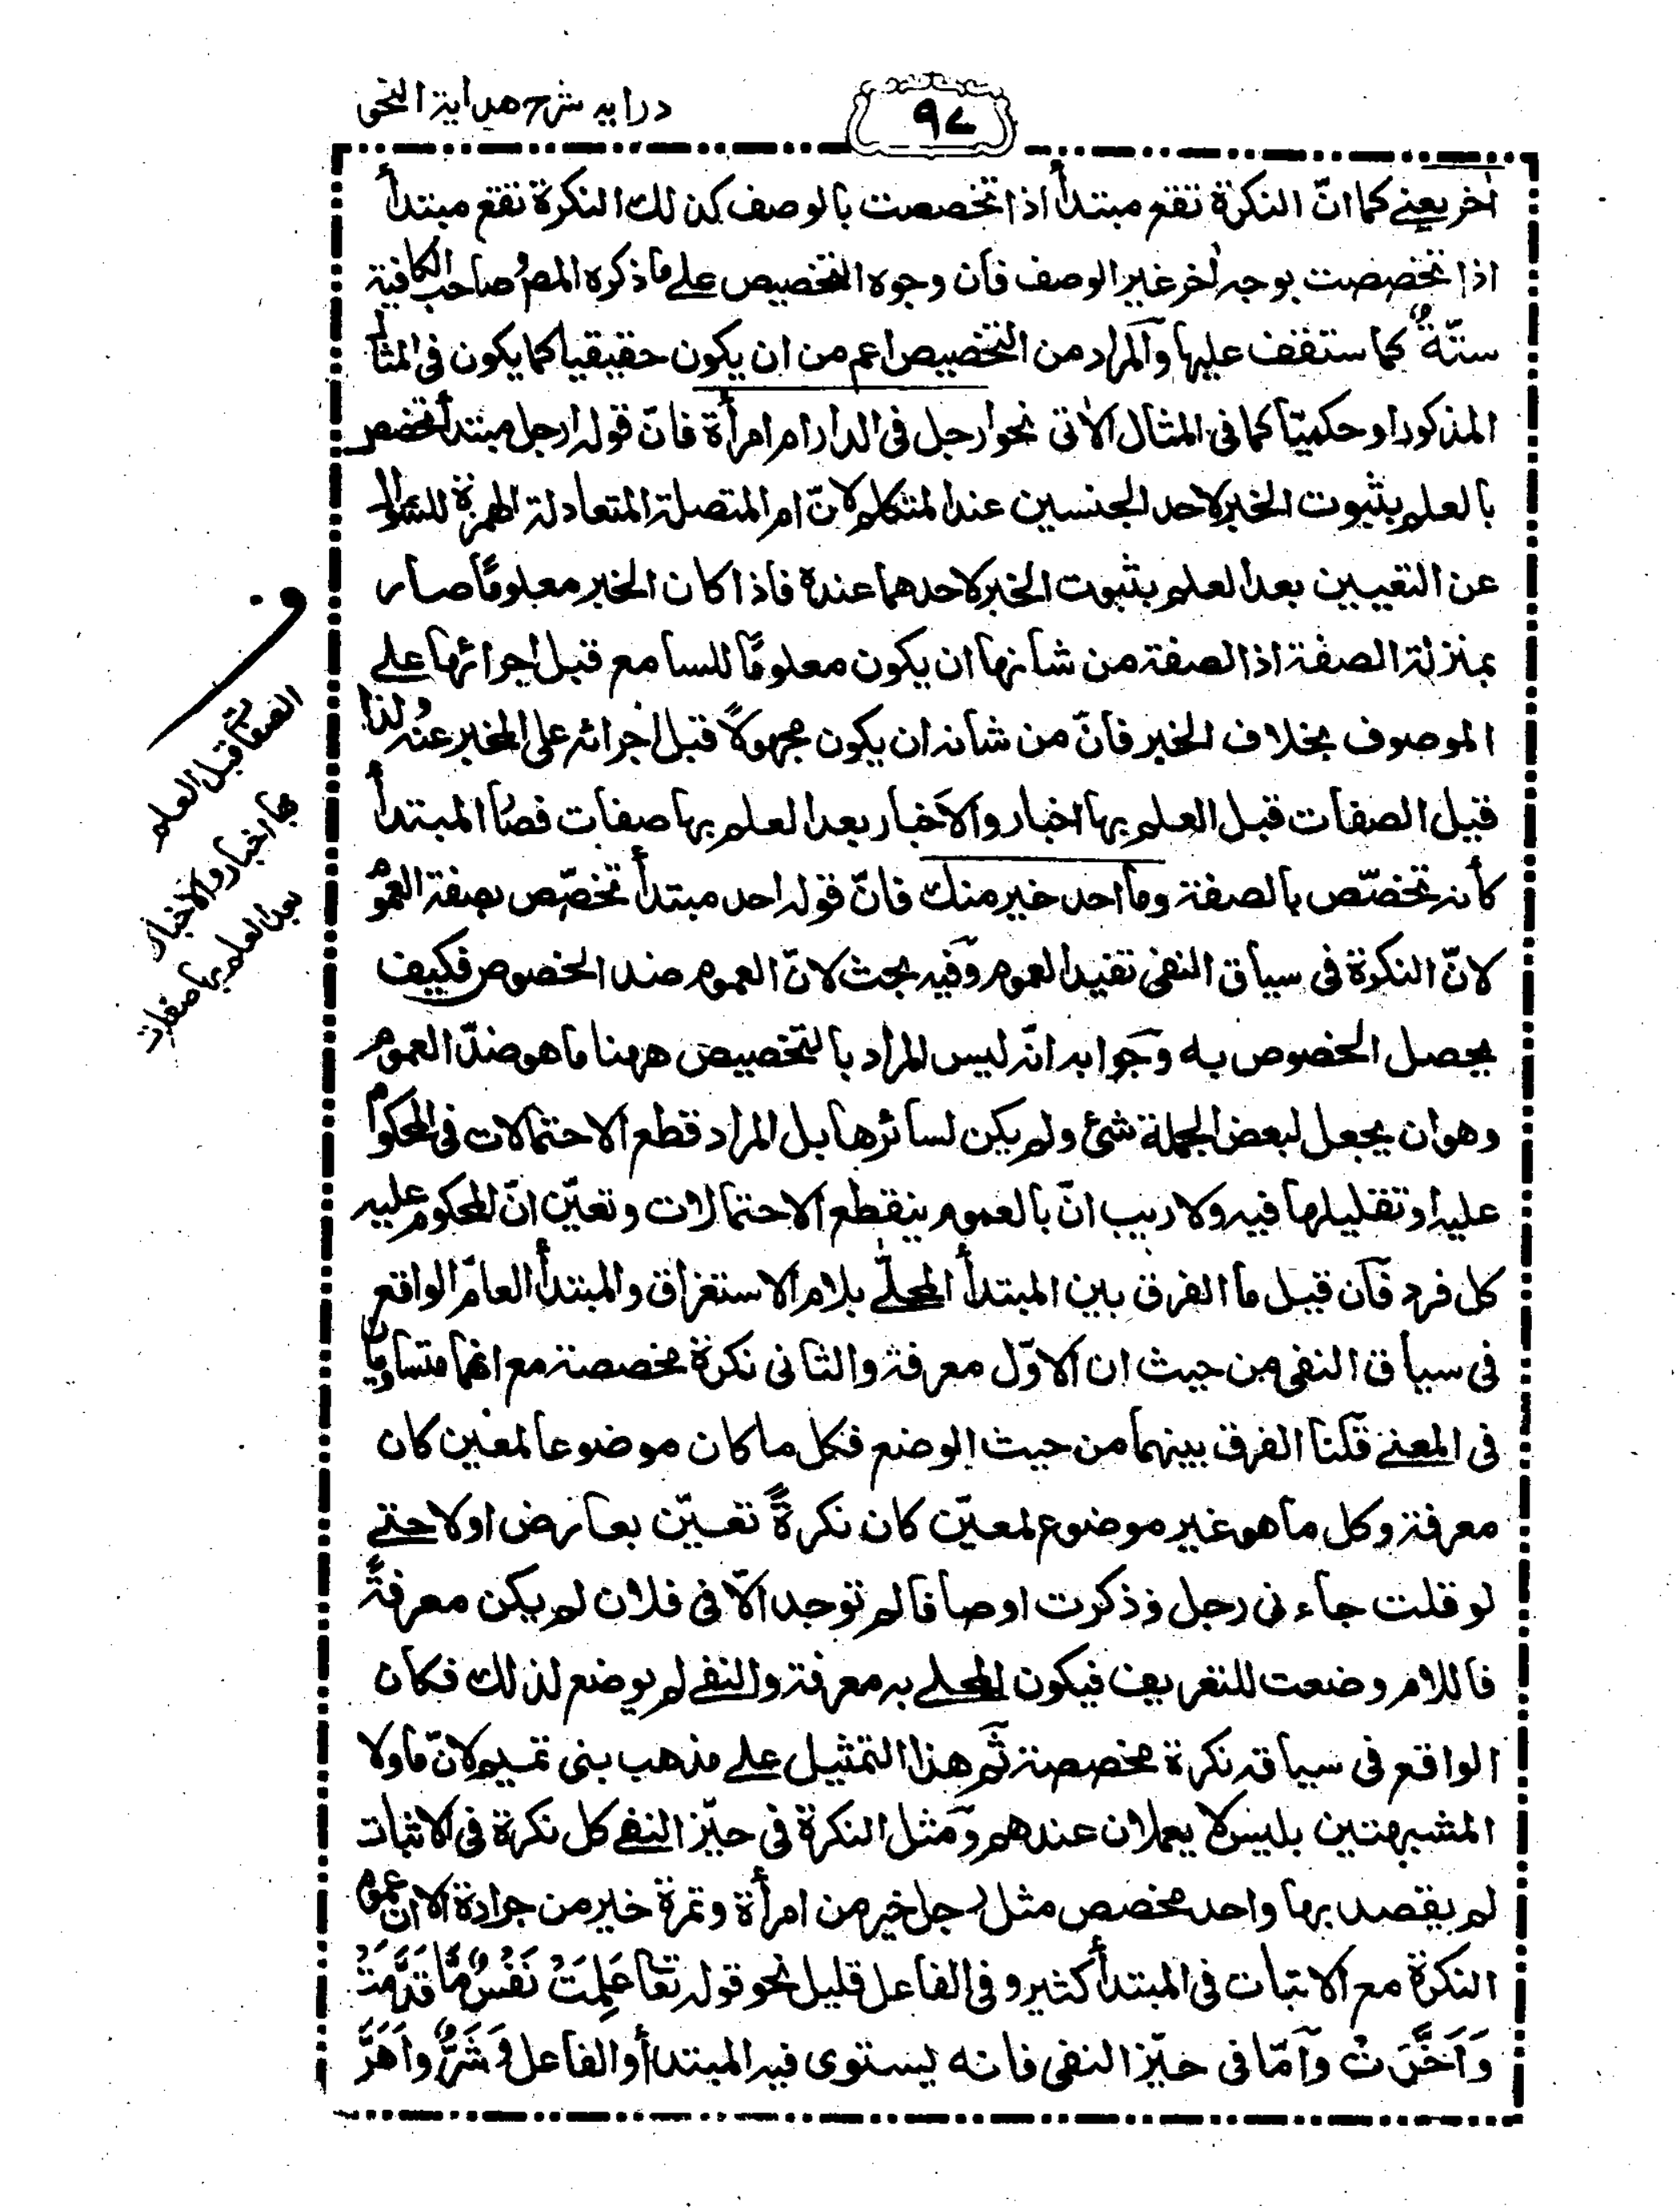 درايه شرح هداية النحو
٩٧
اٰخر يعنے كما انّ النكرة تقع مبتدأ اذا تخصصت بالوصف كذلك النكرة تقع مبتدأ
اذا تخصصت بوجه اٰخر غير الوصف فان وجوه التخصيص علے ما ذكره المصؒ صاحب الكافية
ستّةٌ كما ستقف عليها والمراد من التخصيص اعم من ان يكون حقيقيا كما يكون فى المثال
المذكور او حكميّا كما فى المثال الاٰتى نحو ارجل فى الدار ام امرأة فانّ قوله ارجل مبتدأ تخصص
بالعلم بثبوت الخبر لاحد الجنسين عند المتكلم لانّ ام المتصلة المتعادلة الهمزة للسؤال
عن التعيين بعد العلم بثبوت الخبر لاحدهما عنده فاذا كان الخبر معلومًا صار
بمنزلة الصفة اذ الصفة من شانها ان يكون معلومًا للسامع قبل اجرائها علے
الموصوف بخلاف الخبر فانّ من شانه ان يكون مجهولًا قبل اجرائه على المخبر عنه ولذا
قيل الصفات قبل العلم بها اخبار والاخبار بعد العلم بها صفات فصار المبتدأ
كأنه تخصّص بالصفة وما احد خير منك فانّ قوله احد مبتدأ تخصّص بصفة العموم
لانّ النكرة فى سياق النفى تفيد العموم وفيه بحث لانّ العموم ضد الخصوص فكيف
يحصل الخصوص به وجوابه انّه ليس المراد بالتخصيص ههنا ما هو ضدّ العموم
وهو ان يجعل لبعض الجملة شئ ولم يكن لسائرها بل المراد قطع الاحتمالات فى المحكوم
عليه او تقليلها فيه ولا ريب انّ بالعموم ينقطع الاحتمالات وتعيّن انّ المحكوم عليه
كل فرد فان قيل ما الفرق بين المبتدأ المحلّے بلام الاستغراق والمبتدأ العامّ الواقع
فى سياق النفى من حيث ان الاوّل معرفة والثانى نكرة مخصصة مع انهما متساويان
فى المعنے قلنا الفرق بينهما من حيث الوضع فكل ما كان موضوعا لمعين كان
معرفة وكل ما هو غير موضوع لمعيّن كان نكرةً تعيّن بعارض او لا حتے
لو قلت جاءنى رجل وذكرت اوصافا لم توجد الّا فى فلان لم يكن معرفةً
فاللام وضعت للتعريف فيكون المحلے به معرفة والنفے لم يوضع لذلك فكان
الواقع فى سياقه نكرة مخصصة ثم هذا التمثيل علے مذهب بنى تميم لانّ ما ولا
المشبهتين بليس لا يعملان عندهم ومثل النكرة فى حيّز النفے كل نكرة فى الاثبات
لم يقصد بها واحد مخصص مثل رجل خير من امرأة وتمرة خير من جرادة الا ان عموم
النكرة مع الاثبات فى المبتدأ كثير وفى الفاعل قليل نحو قوله تعا عَلِمَتْ نَفْسٌ مَّا قَدَّمَتْ
وَاَخَّرَتْ وامّا فى حيّز النفى فانه يستوى فيه المبتدأ والفاعل وَشَرٌّ اَهَرَّ
ف
الصفات قبل العلم
بها اخبار والاخبار
بعد العلم بها صفات